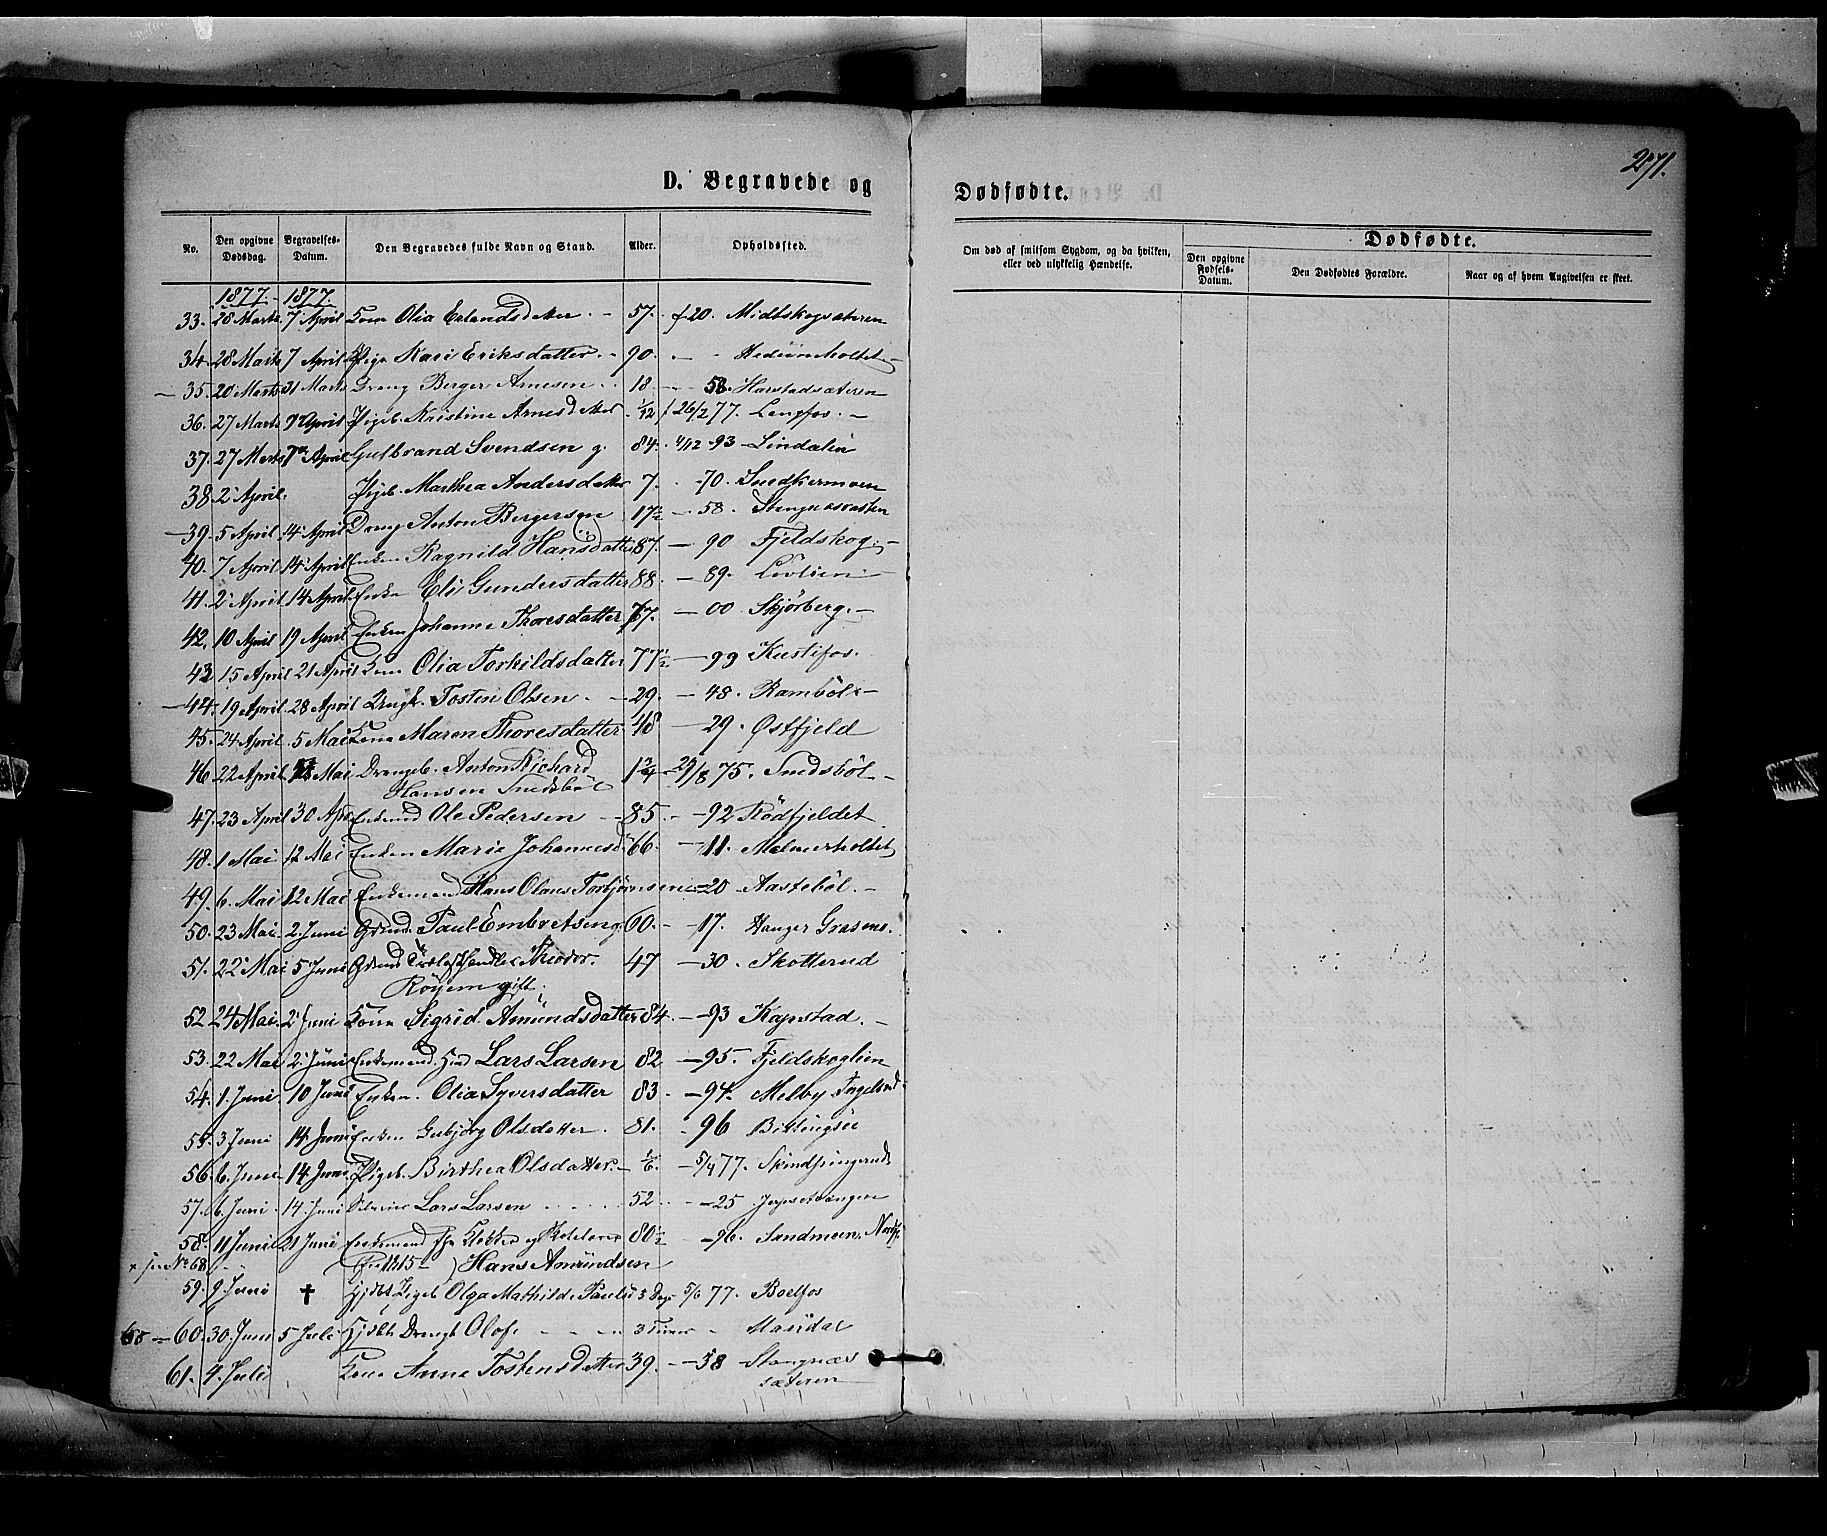 271.
D. Begravede og
Dødfødte.
No. Den opgivne Dødsdag. Begravelses-Datum. Den Begravedes fulde Navn og Stand. Alder. Opholdssted.
Om død af smitsom Sygdom, og da hvilken, eller ved ulykkelig Hændelse.
Dødfødte.
Den opgivne Fødsels-Datum. Den Dødfødtes Forældre. Naar og af hvem Angivelsen er skeet.
1877 - 1877.
33. 28 Marts 7 April Kone Olia Erlandsdatter - 57. f 20. Midtskogsæteren
34. 28 Marts 7 April Pige Kari Eriksdatter - 90. - -
35. 20 Marts 31 Marts Dreng Berger Arnesen 18 - 58. Harstadsæteren
36. 27 Marts 7 April Pigeb. Kristine Arnesdatter 1/12 f 26/2 77. Langfos. -
37. 27 Marts 7 April Gulbrand Svendsen g. 84. 4/12 -93 Lindalen
38. 2 April. Pigeb. Marthea Andersdatter 7. -70. Snedkermoen
39. 5 April 14 April Dreng Anton Bergersen 17½ - 58.
40. 7 April 14 April Enken Ragnild Hansdatter 87. - 90 Fjeldskog. -
41. 2 April 14 April Enke Eli Gundersdatter 88. - 89.
42. 10 April 19 April Enken Johanne Thoresdatter 77. - 00 Skjørberg. -
43 15 April 21 April Kone Olia Torkildsdatter 77½ - 99 Kustifos.
44. 19 April 28 April Tosten Olsen. - 29. - 48. Ramböl -
45. 24 April 5 Mai Kone Maren Thoresdatter 48 - 29. Østfjeld
46 22 April Mai Drengeb. Anton Richard 1¾ 29/8 75. Snedsböl -
Hansen Snedsböl
47. 23 April 30 Apr Enkemd Ole Pedersen - 85. - 92 Rödfjeldet
48. 1 Mai 12 Mai Enken Marie Johannesd 66. - 11. Malmerholtet
49. 6. Mai 12 Mai Enkemand Hans Olaus Torbjörnsen -20 Aasteböl. -
50. 23 Mai. 2. Juni Grmd. Paul Embretsen g 60. - -17. Hanger Grasmo.
51. 22 Mai 5 Juni Theodor. 47 - 30 - Skotterud
Röyem gift.
52. 24 Mai. 2 Juni Kone Sigrid Amundsdatter 84. - 93 Kapstad. -
53. 22 Mai 2 Juni Enkemand Lars Larsen 82 - 95. Fjeldskoglien
54. 1. Juni 10 Juni Enken. Olia Syversdatter 83. - 94. Melby Ingelsrud
55. 3 Juni 14 Juni Enken Gubjörg Olsdatter. 81. - 96 Bittingsöe
56. 6. Juni 14 Juni Pigeb. Birthea Olsdatter. - 1/6. - 5/4 77.
57. 6 Juni 14. Juni Lars Larsen 52 - 25
58. 11 Juni 21 Juni Enkemand 80½ - 96. Sandmoen
No 68 Hans Amundsen
59. 9 Juni † Hjdbt Pigeb Olga Mathilde Paulsd 5 Dage 5/6 77. Boelfos
60. 30. Juni 5 Juli Hjdbt Drengb Olof. - - - 3 Timer -
61. 4. Juli Kone Anne Tostensdatter 39. - 38 Stangnæs
sæteren